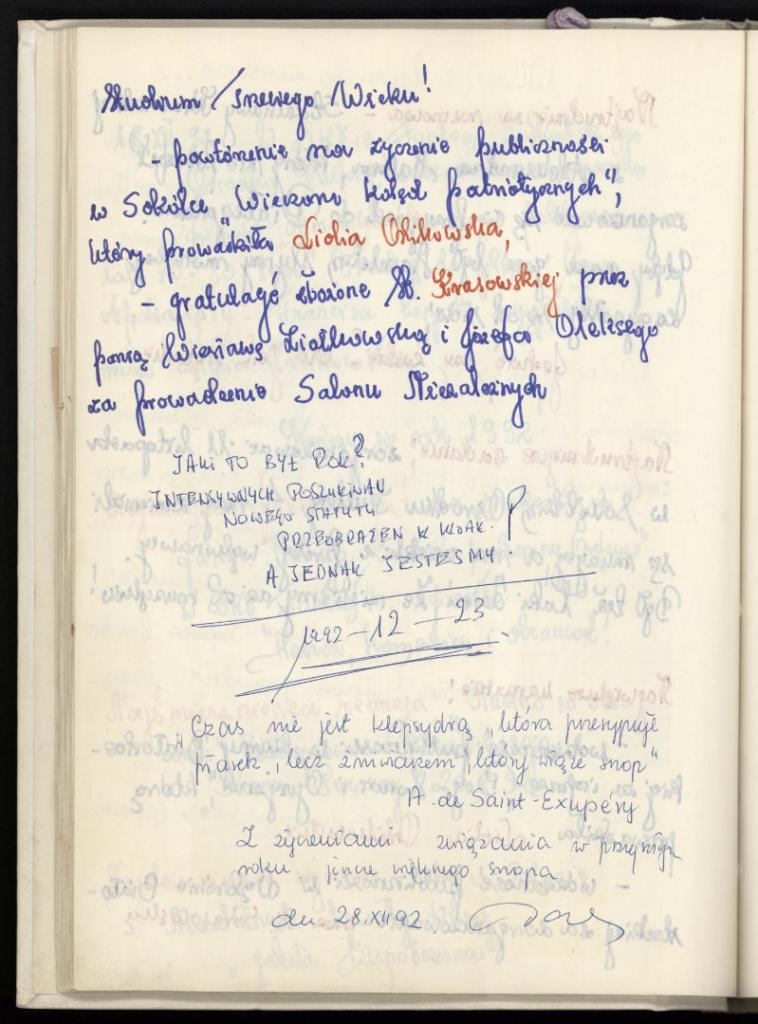 Studium Trzeciego Wieku!
- powtórzenie na życzenie publiczności
w Sokółce "Wieczoru kolęd patriotycznych",
który prowadziła Lidia Orlikowska,
- gratulacje złożone H. Krasowskiej przez
panią Wiesławę Ziółkowską i Józefa Oleksego
za prowadzenie Salonu Niezależnych
JAKI TO BYŁ ROK?
INTENSYWNYCH POSZUKIWAŃ
NOWEGO STATUTU
PRZEOBRAŻEŃ W WOAK.
A JEDNAK JESTEŚMY!
1992-12-23
"Czas nie jest klepsydrą, która przesypuje
piasek, lecz żniwiarzem, który wiąże snop"
A. de Saint-Exupéry
Z życzeniami związania w przyszłym
roku jeszcze większego snopa
dn. 28.XII 92